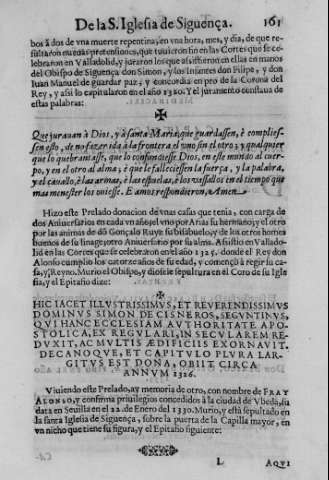 De la S. Iglesia de Siguença. 161
bos à dos de vna muerte repentina, en vna hora, mes, y dia, de que re-
sultaron nueuas pretensiones, que tuuieron fin en las Cortes que se ce-
lebraron en Valladolid, y juraron los que assistieron en ellas en manos
del Obispo de Siguença don Simon, y los Infantes don Filipe, y don
Iuan Manuel de guardar paz, y concordia en pro de la Corona del
Rey, y assi lo capitularon en el año 1320. Y el juramento constaua de
estas palabras:
Que jurauan à Dios, y à santa Maria, que guardassen, è compliés-
sen esto, de no fazer ida à la frontera el vno sin el otro; y qualquier
que lo quebrantasse, que lo confundiesse Dios, en este mundo al cuer-
po, y en el otro al alma; è que le falleciessen la fuerça, y la palabra,
y el cauallo, è las armas, è las espuelas, è los vassallos en el tiempo que
mas menester los ouiesse. E amos respondieron, Amen.
Hizo este Prelado donacion de vnas casas que tenia, con carga de
dos Aniuersarios en cada vn año, el vno por Arias su hermano, y el otro
por las animas de dõ Gonçalo Ruyz su bisabuelo, y de los otros homes
buenos de su linage; otro Aniuersario por su alma. Assistio en Vallado-
lid en las Cortes que se celebraron en el año 1325. donde el Rey don
Alonso cumplio los catorze años de su edad, y començò à regir su ca-
sa, y Reyno. Murio el Obispo, y diose le sepultura en el Coro de su Igle
sia, y el Epitafio dize:
HIC IACET ILLVSTRISSIMVS, ET REVERENDISSIMVS
DOMINVS SIMON DE CISNEROS, SEGVNTINVS,
QVI HANC ECCLESIAM AVTHORITATE APO-
STOLICA, EX REGVLARI, IN SECVLAREM RE-
DVXIT, AC MVLTIS ÆDIFICIIS EXORNAVIT.
DECANOQVE, ET CAPITVLO PLVRA LAR-
GITVS EST DONA, OBIIT CIRCA
ANNVM 1326.
Viuiendo este Prelado, ay memoria de otro, con nombre de FRAY
ALONSO, y confirma priuilegios concedidos à la ciudad de Vbeda, su
data en Seuilla en el 22. de Enero del 1330. Murio, y està sepultado en
la santa Iglesia de Siguença, sobre la puerta de la Capilla mayor, en
vn nicho que tiene su figura, y el Epitafio siguiente:
L AQVI